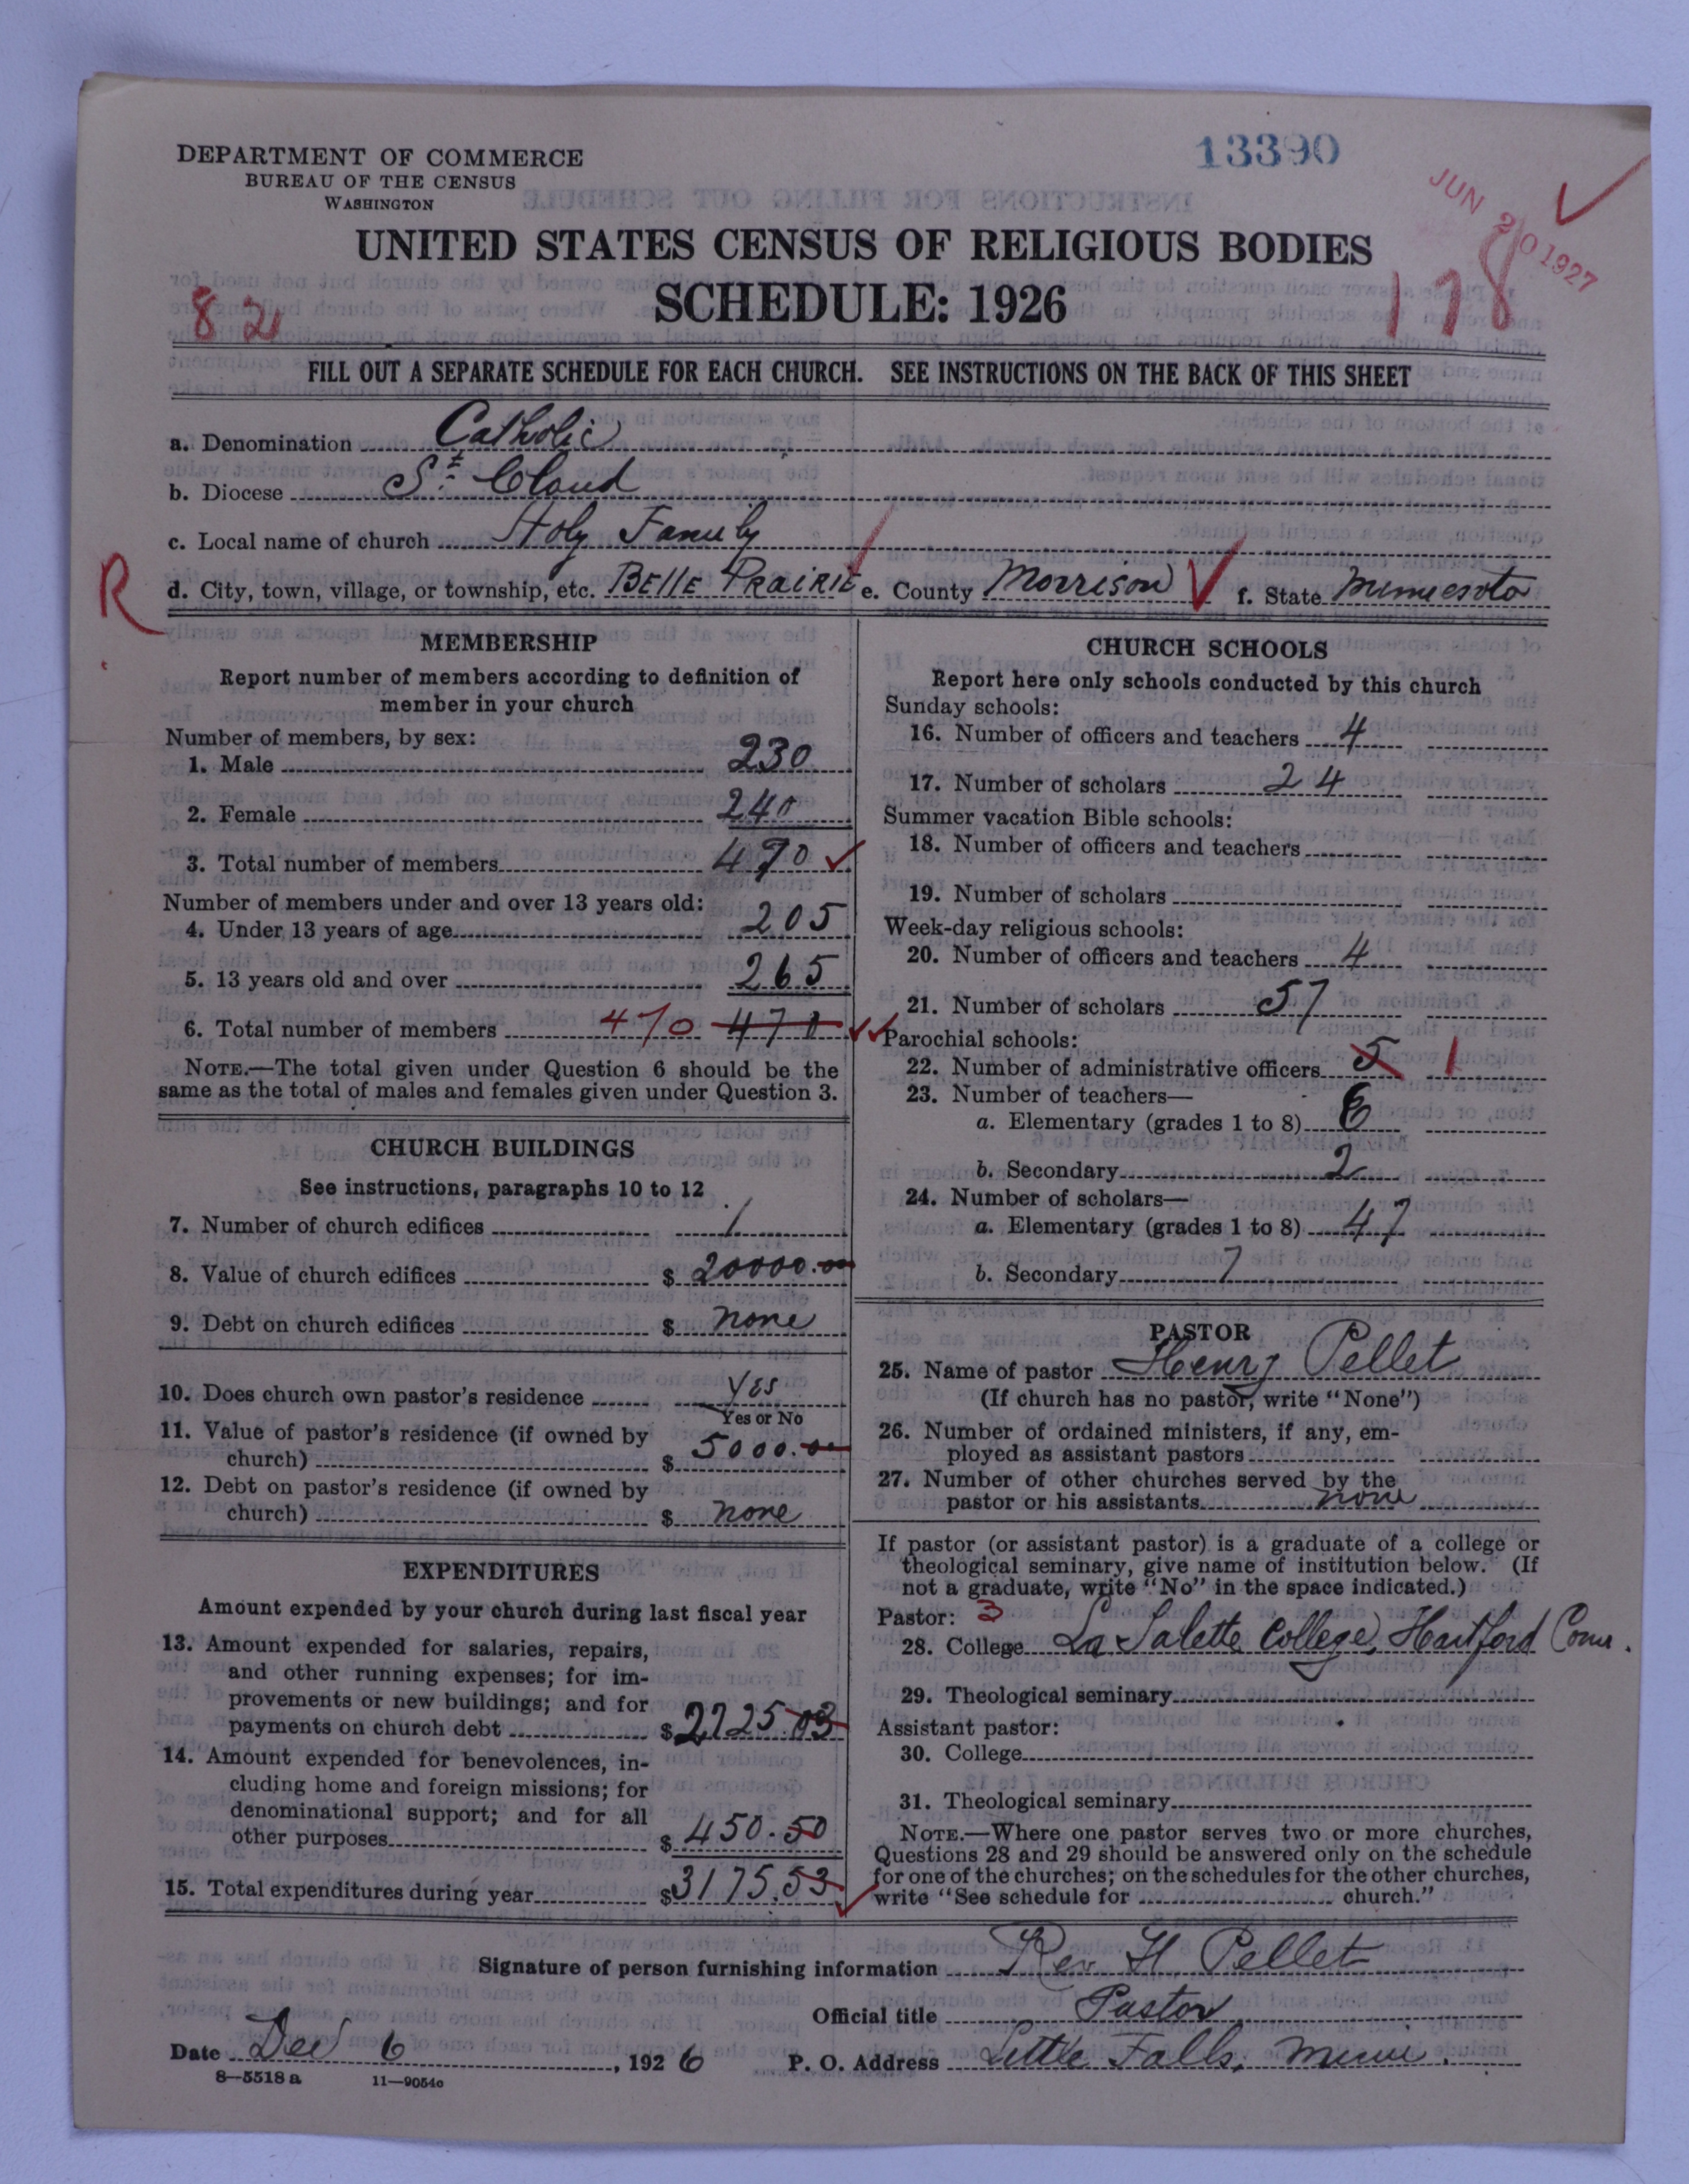 DEPARTMENT OF COMMERCE
BUREAU OF THE CENSUS
WASHINGTON
13390
JUN 20 1927
UNITED STATES CENSUS OF RELIGIOUS BODIES
SCHEDULE: 1926
82
178
FILL OUT A SEPARATE SCHEDULE FOR EACH CHURCH. SEE INSTRUCTIONS ON THE BACK OF THIS SHEET
a. Denomination Catholic
b. Diocese St. Cloud
c. Local name of church Holy Family
R
d. City, town, village, or township, etc. BELLE PRAIRIE e. County Morrison f. State Minnesota
MEMBERSHIP
Report number of members according to definition of
member in your church
Number of members, by sex:
1. Male 230
2. Female 240
3. Total number of members 470
Number of members under and over 13 years old:
4. Under 13 years of age 205
5. 13 years old and over 265
6. Total number of members 470 470
NOTE.—The total given under Question 6 should be the
same as the total of males and females given under Question 3.
CHURCH BUILDINGS
See instructions, paragraphs 10 to 12
7. Number of church edifices 1
8. Value of church edifices $ 20000.00
9. Debt on church edifices $ none
10. Does church own pastor's residence Yes
Yes or No
11. Value of pastor's residence (if owned by
church) $ 5000.00
12. Debt on pastor's residence (if owned by
church) $ none
EXPENDITURES
Amount expended by your church during last fiscal year
13. Amount expended for salaries, repairs,
and other running expenses; for im-
provements or new buildings; and for
payments on church debt $ 2725.03
14. Amount expended for benevolences, in-
cluding home and foreign missions; for
denominational support; and for all
other purposes $ 450.50
15. Total expenditures during year $ 3175.53
CHURCH SCHOOLS
Report here only schools conducted by this church
Sunday schools:
16. Number of officers and teachers 4
17. Number of scholars 24
Summer vacation Bible schools:
18. Number of officers and teachers
19. Number of scholars
Week-day religious schools:
20. Number of officers and teachers 4
21. Number of scholars 57
Parochial schools:
22. Number of administrative officers 5 1
23. Number of teachers—
a. Elementary (grades 1 to 8)
b. Secondary 2
24. Number of scholars—
a. Elementary (grades 1 to 8) 47
b. Secondary 7
PASTOR
25. Name of pastor Henry Pellet
(If church has no pastor, write "None")
26. Number of ordained ministers, if any, em-
ployed as assistant pastors
27. Number of other churches served by the
pastor or his assistants none
If pastor (or assistant pastor) is a graduate of a college or
theological seminary, give name of institution below. (If
not a graduate, write "No" in the space indicated.)
Pastor: 3
28. College La Salette College, Hartford Conn.
29. Theological seminary
Assistant pastor:
30. College
31. Theological seminary
NOTE.—Where one pastor serves two or more churches,
Questions 28 and 29 should be answered only on the schedule
for one of the churches; on the schedules for the other churches,
write "See schedule for church."
Signature of person furnishing information Rev H. Pellet
Official title Pastor
Date Dec 6, 1926 P. O. Address Little Falls, Minn.
8—5518 a 11—9054c